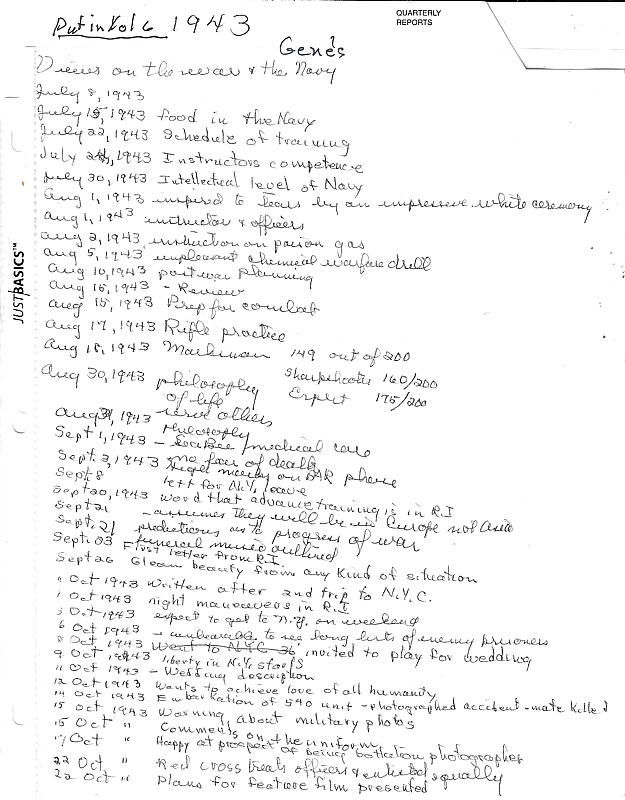 Put in Vol 6 1943
QUARTERLY
REPORTS
Gene's
Views on the war & the Navy
July 8, 1943
July 15, 1943 food in the Navy
July 22, 1943 Schedule of training
July 24, 1943 Instructors competence
July 30, 1943 Intellectual level of Navy
Aug 1, 1943 inspired to tears by an impressive white ceremony
Aug 1, 1943 instructor & officers
Aug 2, 1943 instruction on poison gas
Aug 5, 1943 unpleasant chemical warfare drill
Aug 10, 1943 post war planning
Aug 15, 1943 - Review
Aug 15, 1943 Prep for combat
JUSTBASICS™
Aug 17, 1943 Rifle practice
Aug 18, 1943 Marksman 149 out of 200
Sharpshooter 160/200
Expert 175/200
Aug 30, 1943 philosophy
of life
serve others
Aug 31, 1943 Philosophy
Sept 1, 1943 - SeaBee medical care
Sept. 2, 1943 no fear of death
Sept. 8 on BAR phone
left for N.Y. leave
Sept 20, 1943 word that advance training is in R.I
Sept 21 - assumes they will be in Europe not Asia
Sept. 21 predictions as to progress of war
Sept. 03 funeral music outlined
First letter from R.I.
Sept 26 Glean beauty from any kind of situation
Oct 1943 written after 2nd trip to N.Y.C.
1 Oct 1943 night maneuvers in R.I
5 Oct 1943 expect to get to N.Y. on weekend
6 Oct 1943 - to see long lists of enemy prisoners
8 Oct 1943 Went to NYC invited to play for wedding
9 Oct 1943 liberty in N.Y. staffs
11 Oct 1943 - Wedding description
12 Oct 1943 Wants to achieve love of all humanity
14 Oct 1943 Embarkation of 540 unit - photographed accident - mate killed
15 Oct 1943 Warning about military photos
15 Oct " Comments on the uniform
17 Oct " Happy at prospect of being battalion photographer
22 Oct " Red cross treats officers & enlisted equally
22 Oct " Plans for feature film presented